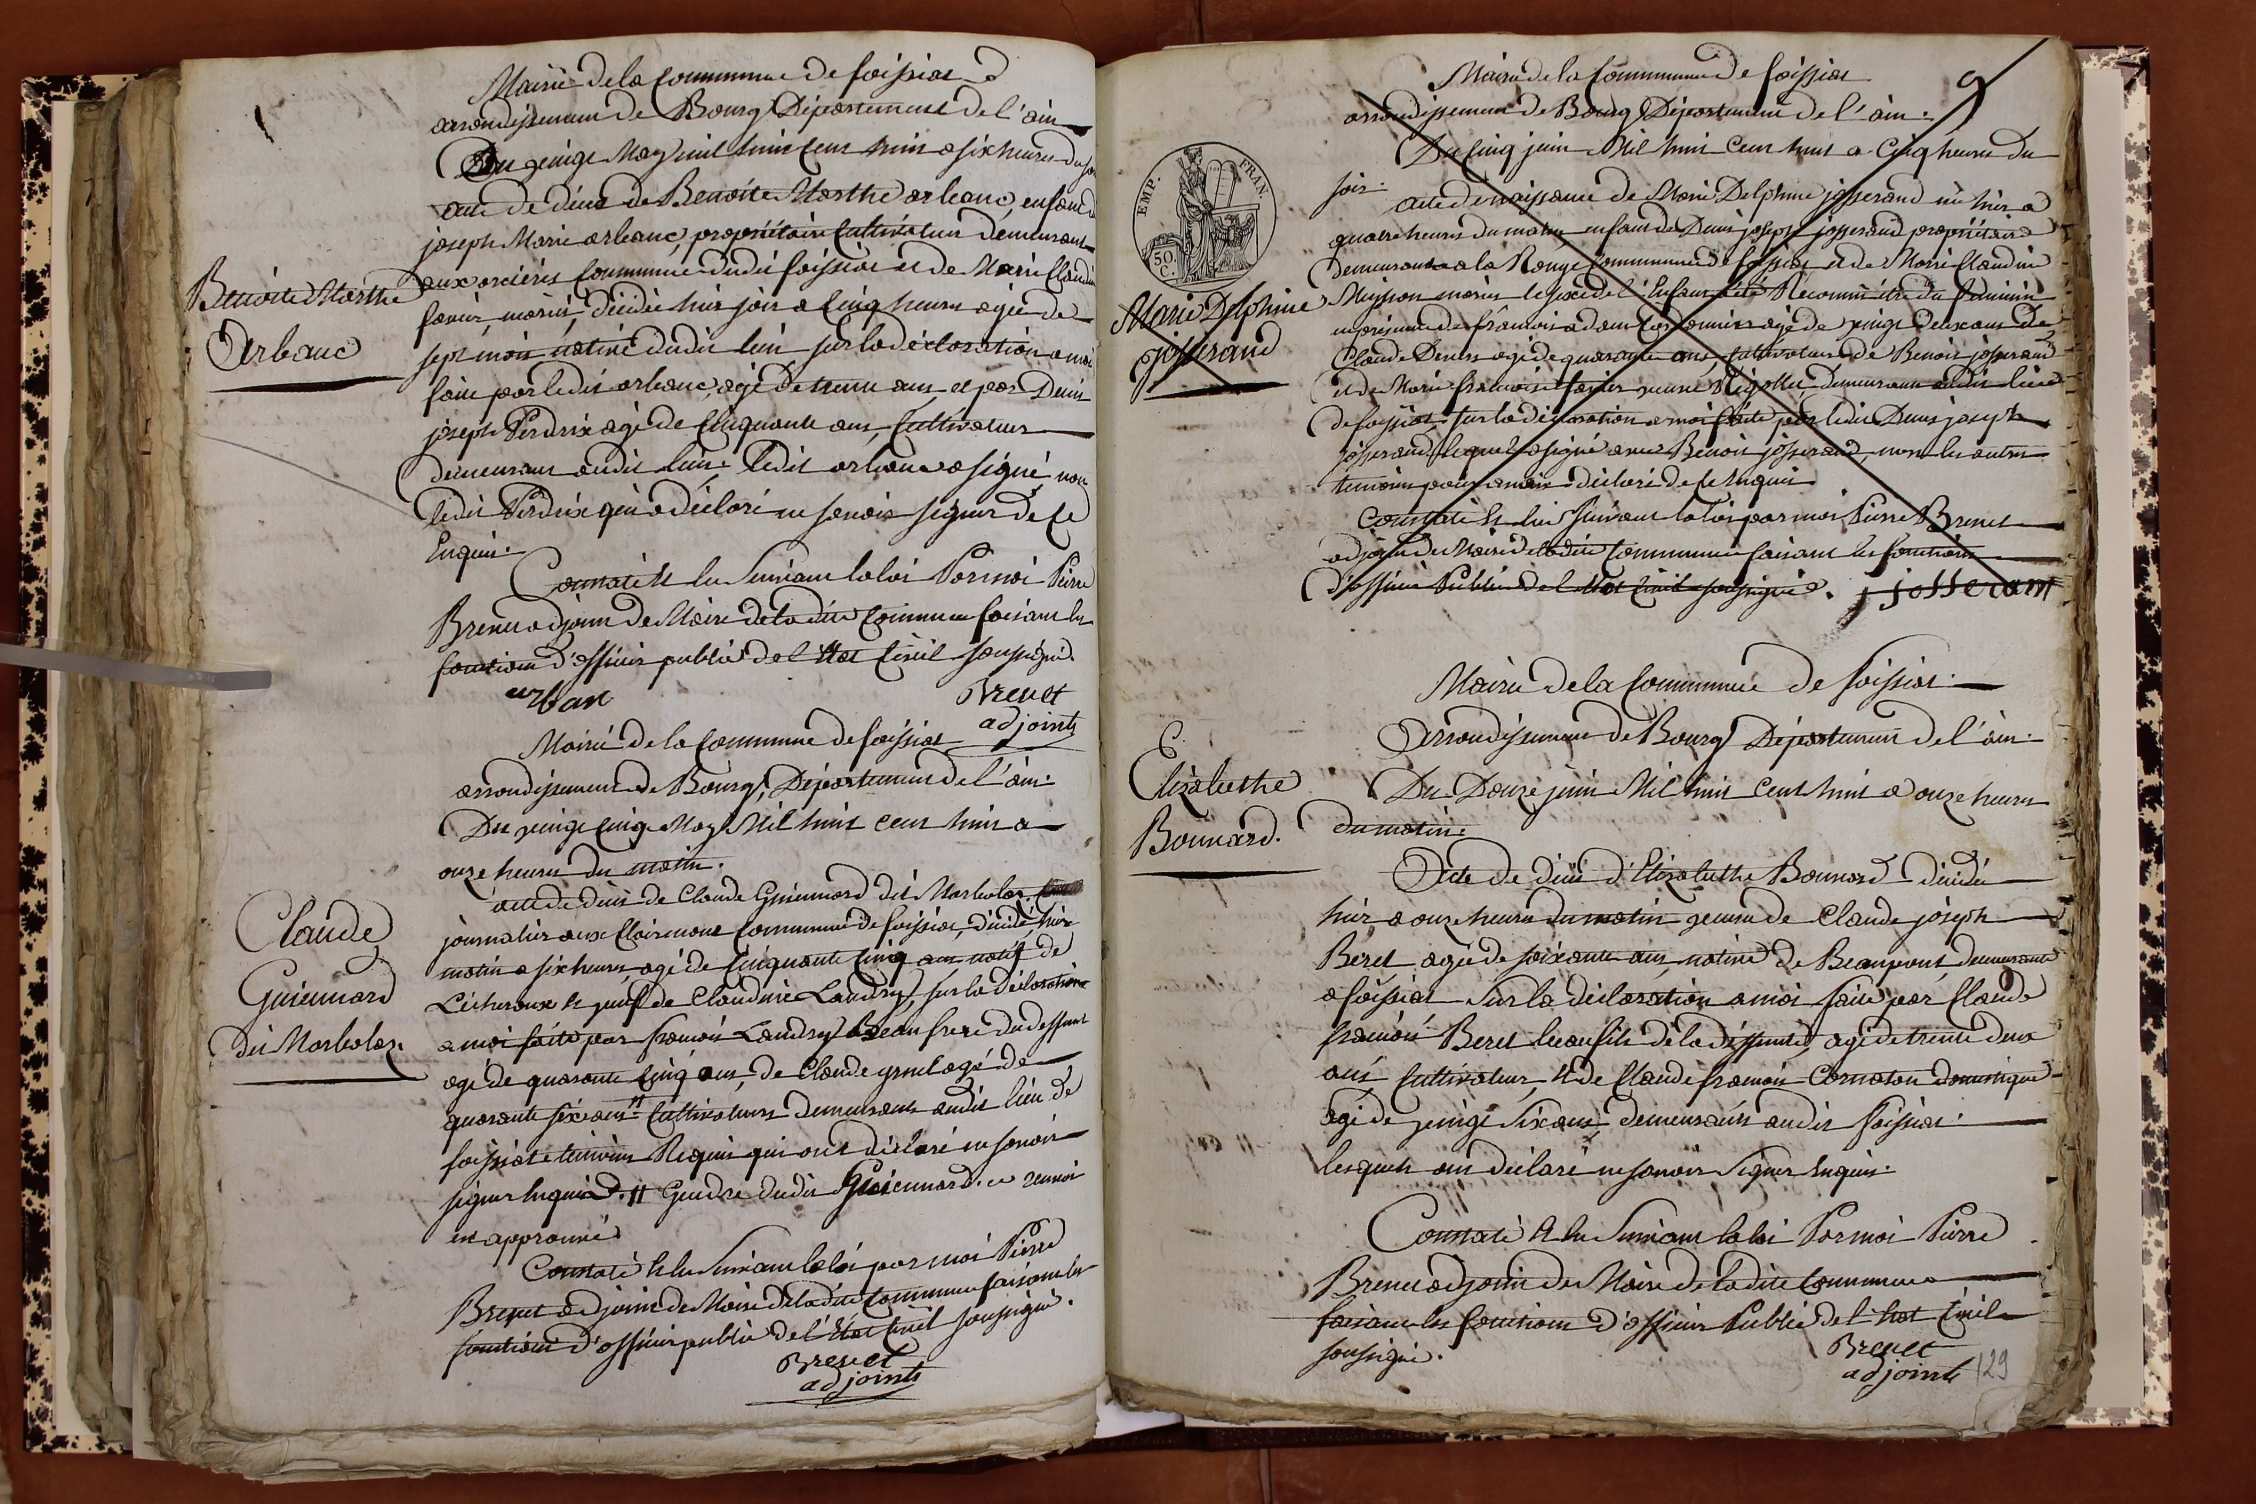 Mairie de la Commune de foissiat
arrondissement de Bourg Département de l'ain
Du vingt May mil huit Cent huit a six heures du soir
acte de décès de Benoite Marthe arbanc, enfant de
joseph Marie arbanc, propriétaire Cultivateur demeurant
aux Commune dudit foissiat et de Marie Claudine
mariés, décédée hier soir a Cinq heures agée de
sept mois native dudit lieu sur la déclaration a moi
faite par ledit arbanc, agé de trente ans et par Denis
joseph Perdrix agé de Cinquante ans, Cultivateur
demeurant audit lieu. ledit arbanc a signé, non
ledit Perdrix qui a déclaré ne savoir signer de Ce
Enquis.
Benoite Marthe
Arbanc
Constaté et lu Suivant la loi Par moi Pierre
Brenet adjoint de Maire de la dite Commune faisant les
fonctions d'officier public de l'Etat Civil soussigné.
arban
Brenet
adjoint
Mairie de la Commune de foissiat
arrondissement de Bourg, Département de l'ain.
Du vingt Cinq May Mil huit Cent huit a
onze heures du matin.
acte de décès de Claude Guiennard dit Marbolaz
journalier aux Clairmont Commune de foissiat, décédé hier
matin a six heures, agé de Cinquante Cinq ans natif de
L'écheroux et veuf de Claudine Landry, sur la déclaration
a moi faite par francois Landry Beau frere du deffunt
agé de quarante Cinq ans, de Claude agé de
quarante six ans # Cultivateurs demeurant audit lieu de
foissiat temoins Requis qui ont déclaré ne savoir
signer Enquis. # Gendre dudit Guiennard. ce renvoi
est approuvé
Claude
Guiennard
dit Marbolaz
Constaté et lu Suivant la loi par moi Pierre
Brenet adjoint de Maire de la dite Commune faisant les
fonctions d'officier public de l'Etat Civil soussigné.
Brenet
adjoint
9
Mairie de la Commune de foissiat
arrondissement de Bourg Département de l'ain.
Du Cinq juin Mil huit Cent huit a Cinq heures du
soir.
EMP. FRAN.
50.
C.
acte de naissance de Marie Delphine josserand née hier a
quatre heures du matin, enfant de Denis joseph josserand propriétaire
demeurant a la Rouge Commune de foissiat et de Marie Claudine
mariés le sexe de l'Enfant a été Reconnu être du féminin
en présence de francois adam agé de vingt deux ans de
Claude agé de quarante ans, Cultivateurs de Benoit josserand
et de Marie francoise demeurant audit lieu
de foissiat, sur la déclaration a moi faite par ledit Denis joseph
josserand, lequel a signé avec Benoit josserand, non les autres
temoins pour avoir déclaré de Ce Enquis
Marie Delphine
josserand
Constaté et lu Suivant la loi par moi Pierre Brenet
adjoint de Maire de la dite Commune faisant les fonctions
d'officier Public de l'Etat Civil soussigné.
j josserant
Mairie de la Commune de foissiat.
Arrondissement de Bourg Département de l'ain.
Du Douze juin Mil huit Cent huit a onze heures
du matin.
Elizabethe
Bonnard.
Acte de décès d'Elizabethe Bonnard décédée
hier a onze heures du matin veuve de Claude joseph
Beret agée de soixante ans, native de Beaupont demeurante
a foissiat sur la déclaration a moi faite par Claude
francois Beret beau fils de la deffunte, agé de trente deux
ans Cultivateur, et de Claude francois Cornaton domestique
agé de vingt six ans, demeurants audit foissiat.
lesquels ont déclaré ne savoir signer Enquis.
Constaté et lu Suivant la loi Par moi Pierre
Brenet adjoint de Maire de la dite Commune
faisant les fonctions d'officier Public de l'Etat Civil
soussigné.
Brenet
adjoint
129